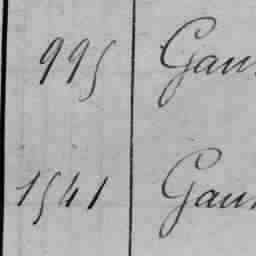 995 Gau
1541 Gau